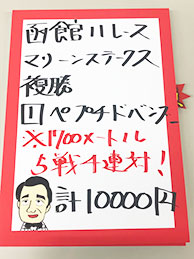 函館11レース
マリーンステークス
複勝
1 ペプチドバンブー
※1700メートル
5戦4連対!
計10000円